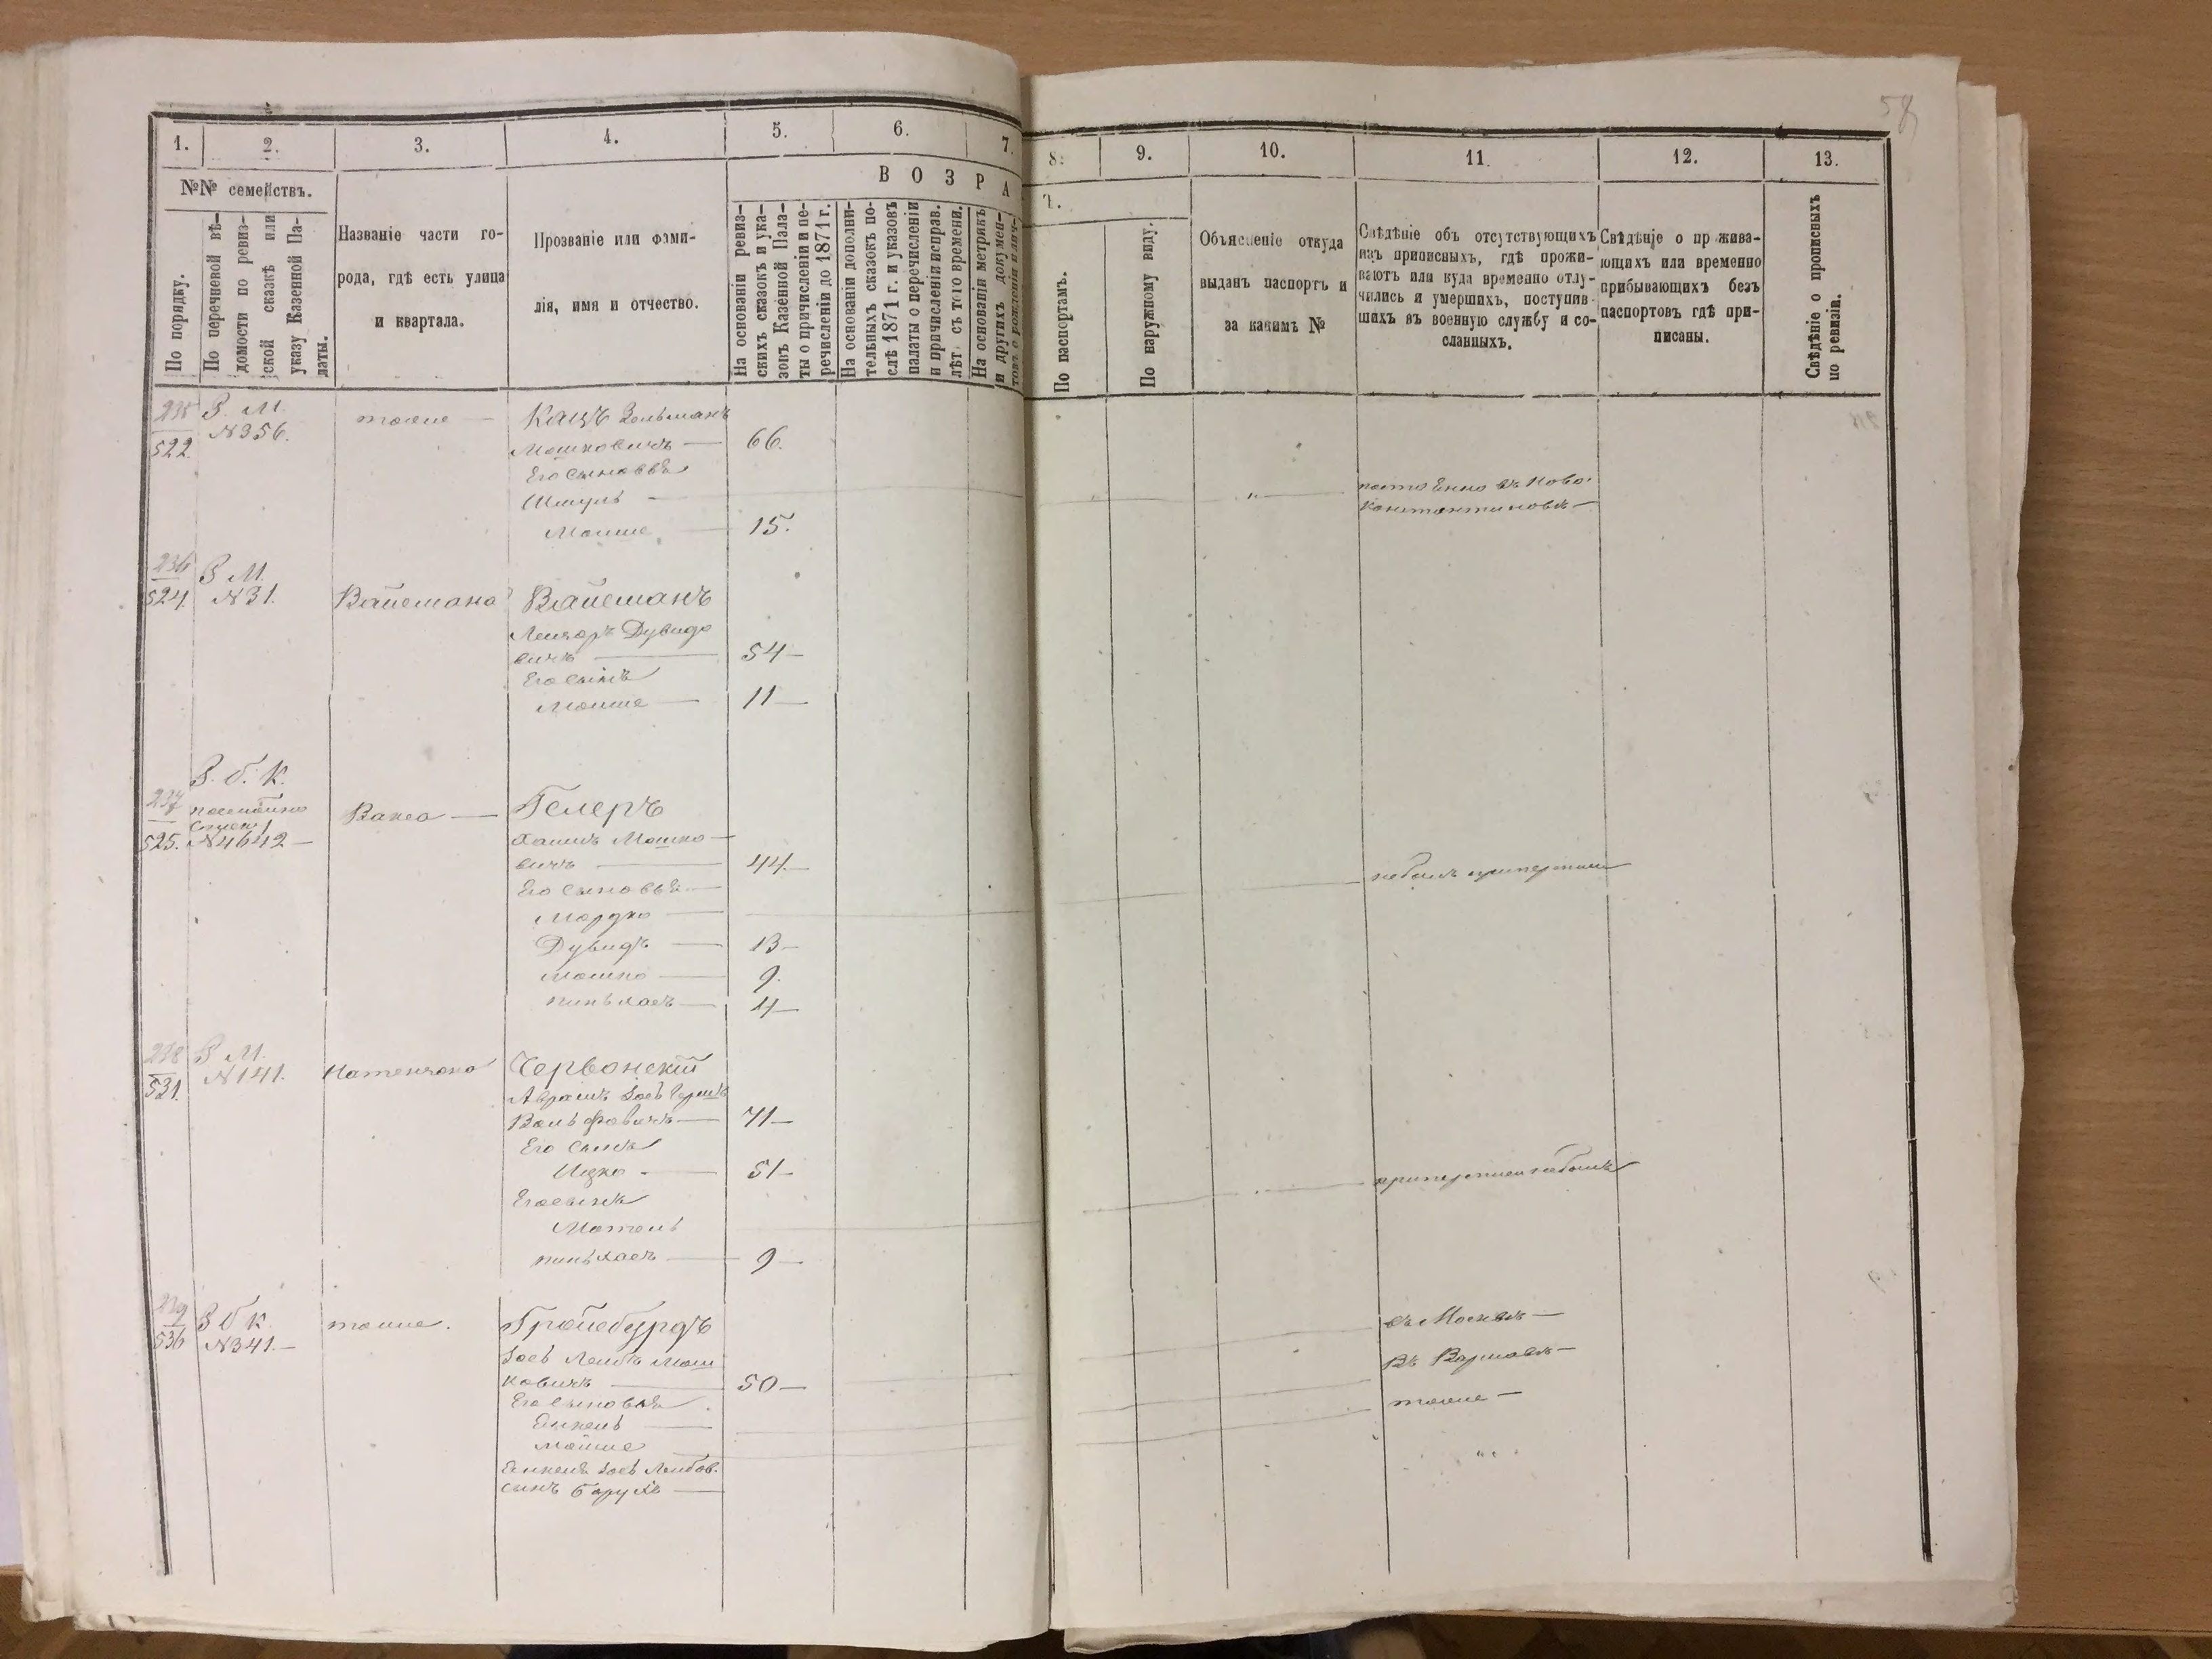 58
1. 2. 3. 4. 5. 6. 7. 8. 9. 10. 11. 12. 13.
№№ семействъ.
В О З Р А
Т.
По порядку.
По перечневой вѣ-
домости по ревиз-
ской сказкѣ или
указу Казенной Па-
латы.
Названіе части го-
рода, гдѣ есть улица
и квартала.
Прозваніе или фами-
лія, имя и отчество.
На основаніи ревиз-
скихъ сказокъ и ука-
зовъ Казенной Пала-
ты о причисленіи и пе-
речисленіи до 1871 г.
На основаніи дополни-
тельныхъ сказокъ по-
слѣ 1871 г. и указовъ
палаты о перечисленіи
и причисленіи исправ.
лѣт съ того времени.
На основаніи метрикъ
и другихъ докумен-
товъ о рожденіи и лич-
По паспортамъ.
По наружному виду.
Объясненіе откуда
выданъ паспортъ и
за какимъ №
Свѣдѣніе объ отсутствующихъ
изъ приписныхъ, гдѣ прожи-
ваютъ или куда временно отлу-
чились и умершихъ, поступив-
шихъ въ военную службу и со-
сланныхъ.
Свѣдѣніе о прожива-
ющихъ или временно
прибывающихъ безъ
паспортовъ гдѣ при-
писаны.
Свѣдѣніе о прописныхъ
по ревизіи.
235 З. М. тоже — Кацъ Зельманъ
522. № 356.
Мошковичъ — 66.
Его сыновья
Шмуль —
Мошке — 15.
постоенно въ Ново-
Константиновѣ —
236 З М.
524. № 31. Вайсмана Вайсманъ
Лейзоръ Дувидо
вичъ — 54 —
Его сынъ
Мошке — 11 —
З. б. К.
237 Вакса — Гелеръ
525. № 4642 —
Хаимъ Мошко —
вичъ — 44. —
Его сыновья —
Мордко —
Дувидъ — 13 —
Мошко — 9.
Пиньхасъ — 4 —
небылъ
238 З М. Червонский
531. № 141.
Аврамъ Іось Гершъ
Вольфовичъ — 71 —
Его сынъ
Ицко — 51 —
Его сынъ
Мотель
Пиньхасъ — 9 —
небылъ
239 З б К тоже. Гройсбурдъ
536 № 341. —
Іось Лейбъ Мош
ковичъ — 50 —
Его сыновья
Янкель —
Мошке
Янкель Іось Лейбов.
сынъ Барухъ —
въ Москвѣ —
Въ Варшавѣ —
тоже —
„ „